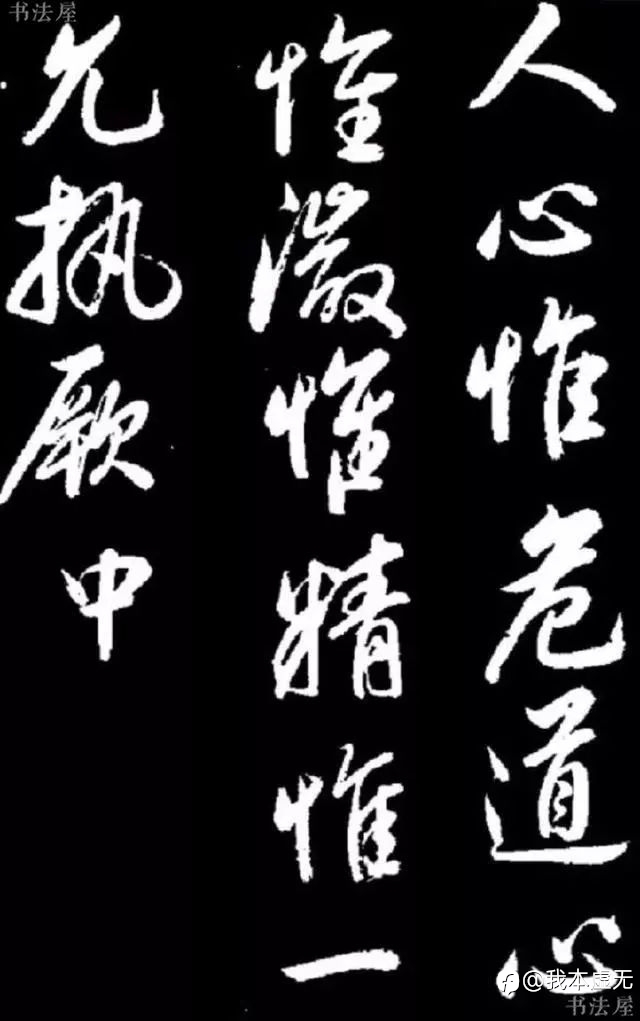 人心惟危道心
惟微惟精惟一
允执厥中
书法屋
@我本.虚无
书法屋